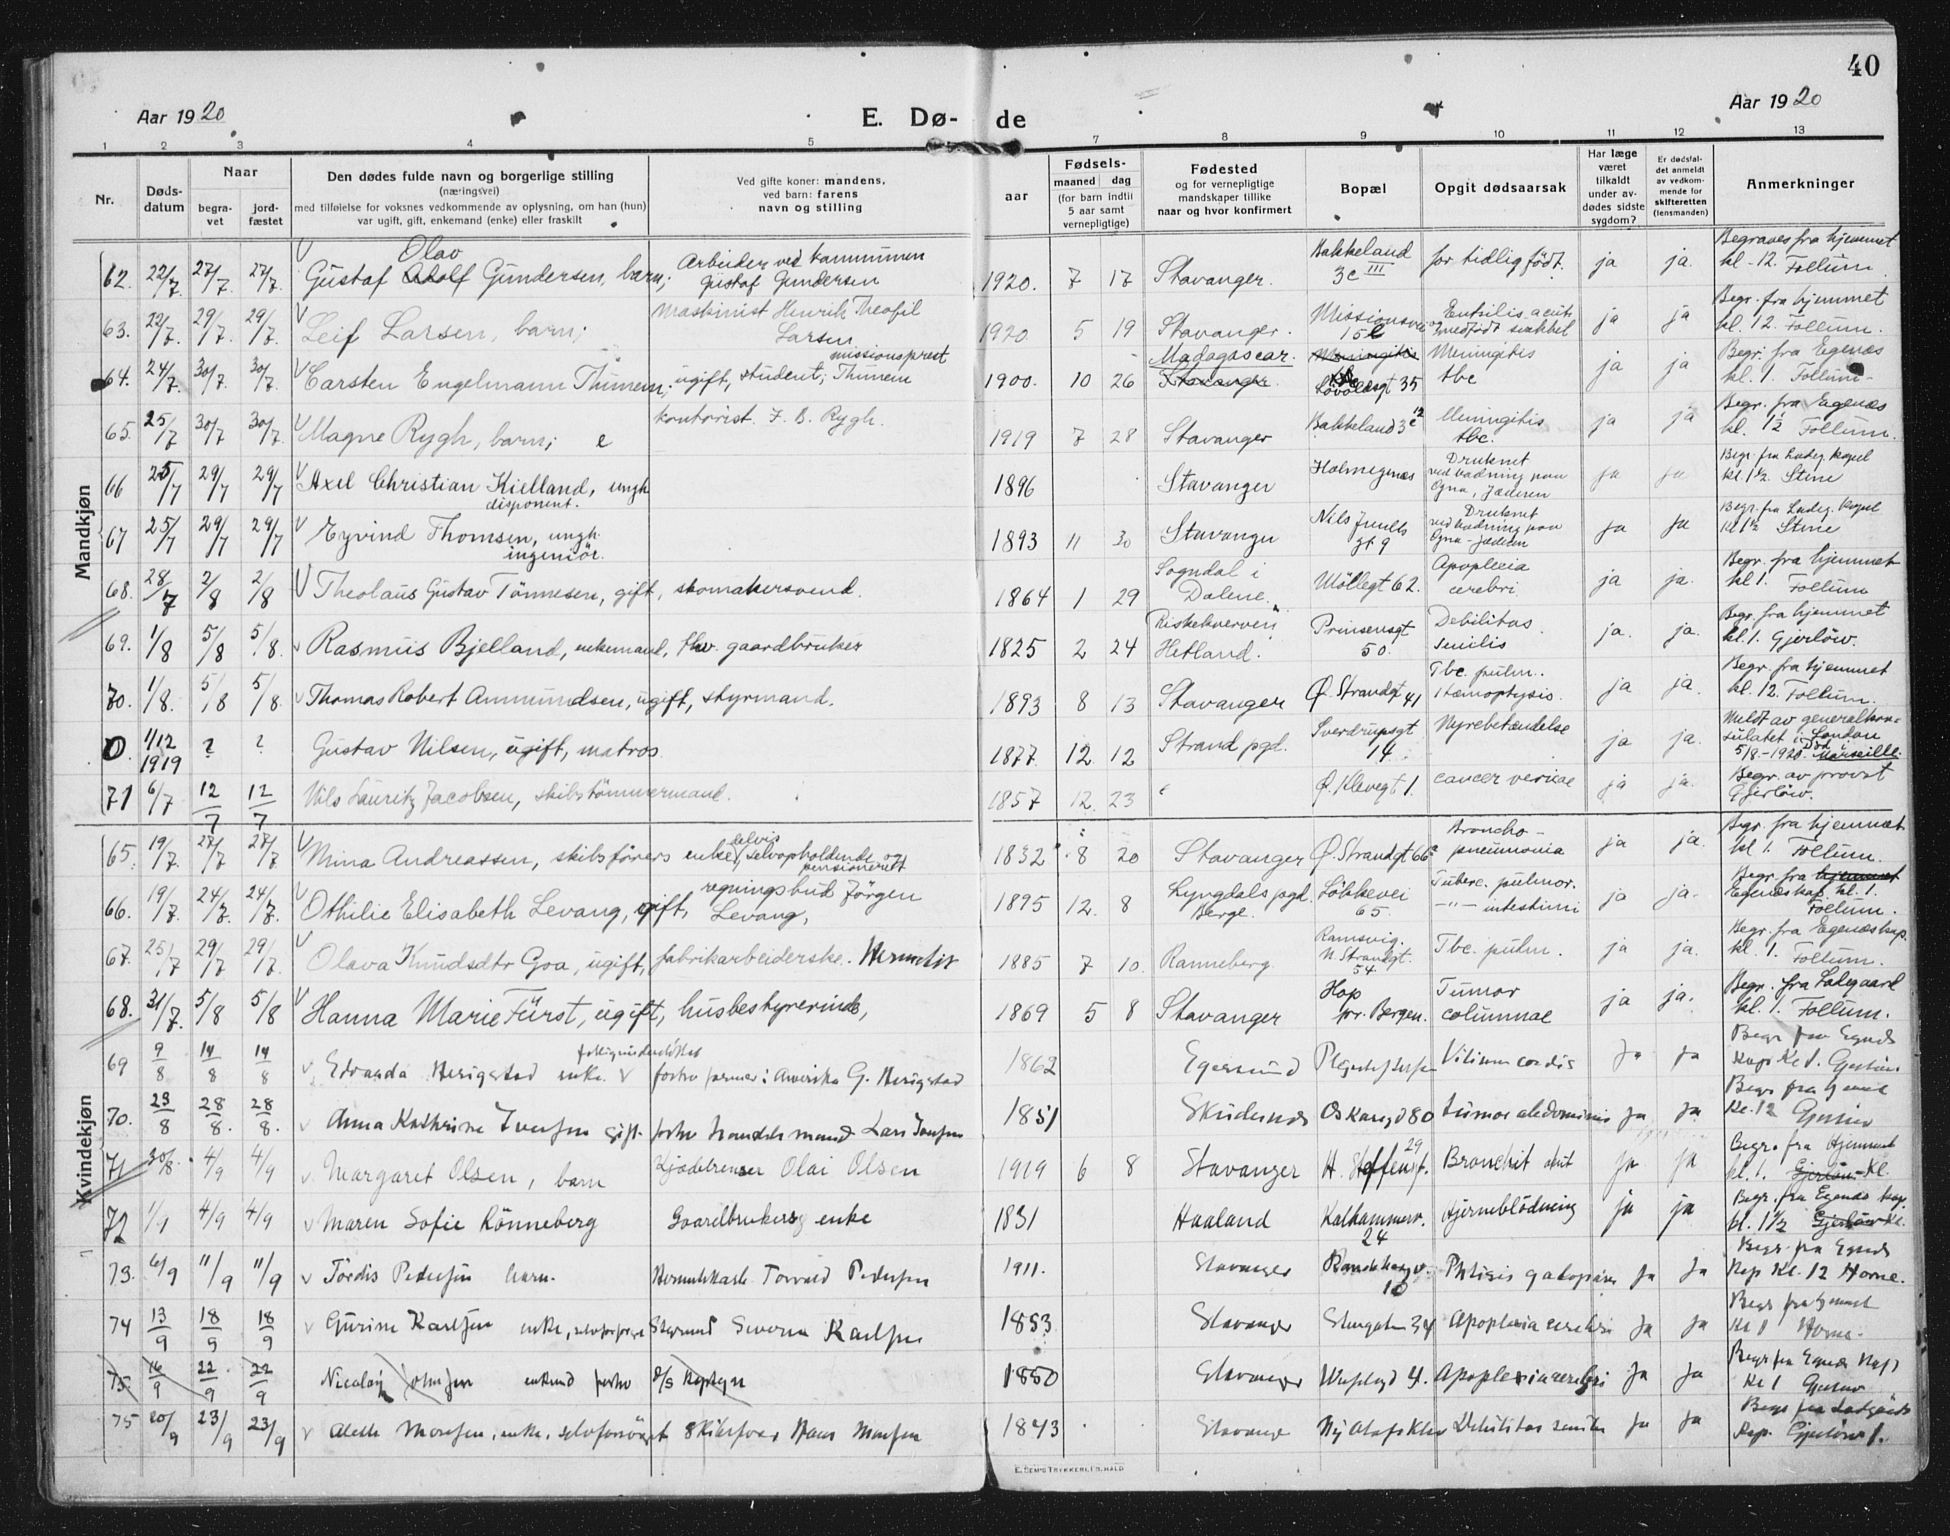 40
Aar 1920
E. Dø- de
Aar 1920
1 2 3 4 5 7 8 9 10 11 12 13
Nr.
Døds-
datum
Naar
begra-
vet
jord-
fæstet
Den dødes fulde navn og borgerlige stilling
(næringsvei)
med tilføielse for voksnes vedkommende av oplysning, om han (hun)
var ugift, gift, enkemand (enke) eller fraskilt
Ved gifte koner: mandens,
ved barn: farens
navn og stilling
Fødsels-
aar
maaned dag
(for barn indtil
5 aar samt
vernepligtige)
Fødested
og for vernepligtige
mandskaper tillike
naar og hvor konfirmert
Bopæl
Opgit dødsaarsak
Har læge
været
tilkaldt
under av-
dødes sidste
sygdom?
Er dødsfal-
det anmeldt
av vedkom-
mende for
skifteretten
(lensmanden)
Anmerkninger
Mandkjøn
Olav Arbeider ved kommunen Bakkeland Begraves fra hjemmet
62. 22/7 27/7. 27/7. Gustaf Adolf Gundersen, barn; Gustaf Gundersen 1920. 7 17 Stavanger. 3c III for tidlig født. ja ja. kl. 12. Follum
Maskinist Henrik Theofil Begr. fra hjemmet
63. 22/7. 29/7. 29/7. Leif Larsen, barn; Larsen 1920 5 19 Stavanger. 15 ja ja kl. 12. Follum.
missionsprest Madagascar. Meningitis Meningitis Begr. fra Egenæs
64. 24/7. 30/7. 30/7. Carsten Engelmann Thunem, ugift, student; Thunem 1900. 10 26 Stavanger. 35 tbc ja ja kl. 1. Follum.
kontorist F. B. Rygh. Meningitis Begr. fra Egenæs
65. 25/7 30/7 30/7. Magne Rygh, barn; 1919 7 28 Stavanger Bakkeland 3c tbc. ja ja kl. 1/2 Follum.
Druknet Begr. fra Ladeg. kapel
66 25/7 29/7 29/7 Axel Christian Kielland, ungk. 1896 Stavanger Holmegenæs ved badning paa ja ja kl. 1 1/2 Stene
disponent. Ogna, Jæderen
Nils Juuls Druknet Begr. fra Ladeg. kapel
67 25/7 29/7 29/7 Eyvind Thomsen, ungk. 1893 11 30 Stavanger gt 9 ved badning paa ja ja kl 1 1/2 Stene
ingeniør. Ogna - Jæderen
Sogndal i Apoplexia Begr. fra hjemmet
68. 28/7 2/8 2/8 Theolaus Gustav Tönnesen, gift, skomakersvend. 1864 1 29 Dalene. Møllegt 62. cerebri. ja ja. kl 1. Follum
Riskekverven Prinsensgt Debilitas Begr. fra hjemmet
69. 1/8 5/8 5/8. Rasmus Bjelland, enkemand, fhv. gaardbruker 1825 2 24 Hetland. 50. senilis ja. ja. kl. 1. Gjerløw.
Tbc. pulm. Begr. fra hjemmet
70. 1/8. 5/8 5/8. Thomas Robert Ammundsen, ugift, styrmand. 1893 8 13 Stavanger Ø. Strandgt 41 Hæmoptysis. ja ja. kl. 12. Follum.
0. 1/12 1919 ? ? Gustav Nilsen, ugift, matros 1877. 12. 12 Strand pgd. Sverdrupsgt 14. Nyrebetændelse ja ja. Meldt av generalkon-
sulatet i London
5/8-1920. Død Marseille.
71 6/7 12/7 12/7 Nils Lauritz Jacobsen, skibstömmermand. 1857 12. 23 Ø. Klevegt 1. cancer vesicae ja ja. Begr. av provst
Gjerløw.
Kvindekjøn
delvis Broncho- Begr. fra hjemmet
65. 19/7. 27/7 27/7. Mina Andreassen, skibsførers enke, selvopholdende og 1832 8 20 Stavanger Ø. Strandgt 66 pneumonia ja ja. kl 1. Follum.
pensioneret
regningsbud Jörgen Tuberc. pulmon. Begr. fra hjemmet
66. 19/7. 24/7. 24/7. Othilie Elisabeth Levang, gift, Levang, 1895 12. 8 Lyngdals pgd. Berge. Løkkevei 65. -"- intestini ja ja. Egenæs kap. kl. 1.
Follum.
Ramsvig. Begr. fra Egenæs kap.
67. 25/7 29/7 29/7. Olava Knudsdtr Goa, ugift, fabrikarbeiderske. Hermetik 1885 7 10. Ranneberg N. Strandgt. 54 Tbc. pulm. ja ja. kl. 1. Follum.
Hop Tumor Begr. fra Ladegaard
68. 31/7. 5/8 5/8 Hanna Marie Fürst, ugift, husbestyrerinde, 1869 5 8 Stavanger pr. Bergen. columnae ja ja. kl. 1. Follum.
69 9/8 14/8 14/8 Edvarda Herigstad enke. fattigunderstøttet forhv farmer i Amerika G. Herigstad 1862 Egersund Vitium cordis ja ja Begr fra Egnæs
Kap Kl 1.
70. 23/8 28/8. 28/8. Anna Kathrine Iversen gift. forhv handelsmand Lars Iversen 1851 Skudesnæs Oskarsgd 80 tumor abdominis ja ja Begr fra hjemmet
Kl. 12
71 30/8. 4/9 4/9 Margaret Olsen, barn Kjedelrenser Olai Olsen 1919 6 8 Stavanger H. Steffensgt. 29 Bronchit akut ja ja Begr. fra Hjemmet
kl. 1.
72 1/9 4/9 4/9 Maren Sofie Rönneberg Gaardbrukers enke 1831 Haaland Kalhammerv. 24 Hjerneblödning ja ja Begr. fra Egenæs kap.
kl. 1 1/2
73. 6/9 11/9 11/9 Tordis Pedersen barn. Torvald Pedersen 1911. Stavanger 10 ja ja Begr. fra Egnæs
Kap Kl. 12 Horne.
74 13/9 18/9 18/9 Gurine Karlsen enke, Styrmand Severin Karlsen 1853 Stavanger 34 Apoplexia cerebri ja ja Begr fra hjemmet
Kl 1 Horne.
75. 16/9 22/9 22/9 Nicolay Johnsen enkemd forhv D/S Kaptejn 1850 Stavanger 4. Apoplexia cerebri ja ja Begr fra Egnæs Kap
Kl 1
75 20/9 23/9 23/9 Alette Monsen, enke, selvforsörget Skibsförer Hans Monsen 1843 Stavanger Ny Olafs Klev Debilitas senilis ja ja Begr fra Ladegaards
Kap. 1.
E. SEM'S TRYKKERI, FR.HALD